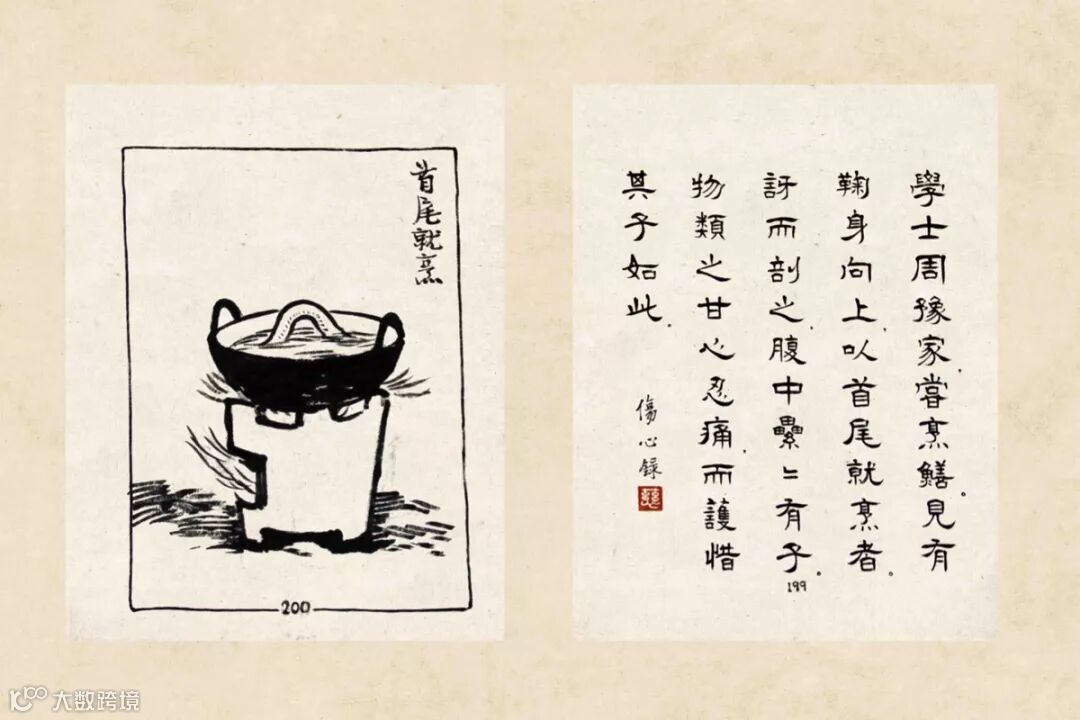 學士周豫家，嘗烹鱔。見有
鞠身向上，以首尾就烹者。
訝而剖之，腹中纍〻有子。
物類之甘心忍痛，而護惜
其子如此。
傷心錄
199
首尾就烹
200
大数跨境